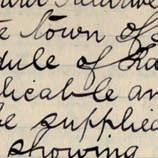 e town of
dule of Ra
licable an
be supplied
showing